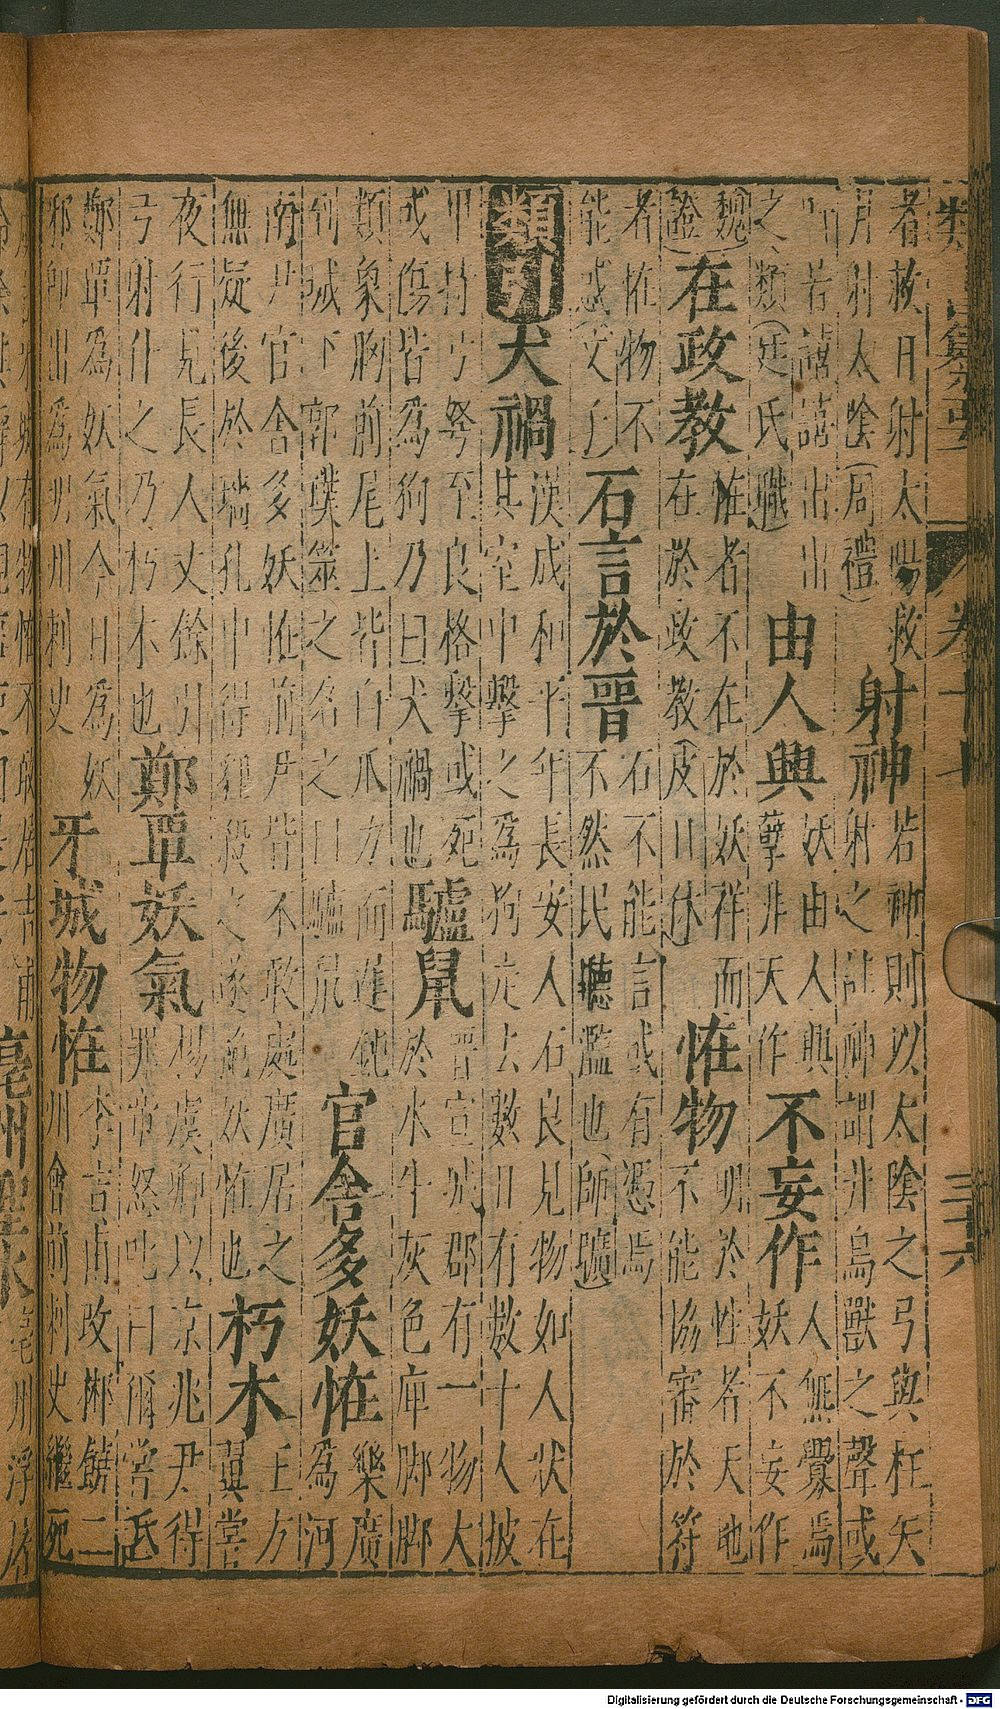 者救日射太陽救
月射太陰(周禮)
射神
若神則以太陰之弓與枉矢
射之註神謂非鳥獸之聲或
叫若譆譆出出
之類(廷氏職)
由人興
妖由人興
孽非天作
不妄作
人無釁焉
妖不妄作
魏
證)
在政教
恠者不在於妖祥而
在於政教(皮日休)
恠物
明於性者天地
不能協審於符
者恠物不
能惑(文子)
石言於晉
石不能言或有憑焉
不然民聽濫也(師曠)
類引
犬禍
漢成和平年長安人石良見物如人状在
其室中擊之為狗走去數日有數十人披
甲持弓弩至良格擊或死
或傷皆為狗乃曰犬禍也
驢鼠
晋宣城郡有一物大
於水牛灰色庳脚脚
類象胸前尾上皆白爪力而遲鈍
到城下郭璞筮之名之曰驢鼠
官舍多妖恠
樂廣
為河
南尹官舍多妖恠前尹皆不敢處廣居之
無疑後於墻孔中得貍殺之遂絶妖恠也
朽木
上方
翼嘗
夜行見長人丈餘引
弓射仆之乃朽木也
鄭覃妖氣
楊虞卿以京兆尹得
罪常怒叱曰爾嘗詆
鄭覃為妖氣今日為妖
邪卸出為明州刺史
牙城物恠
李吉甫改郴饒二
州會前刺史繼死
Digitalisierung gefördert durch die Deutsche Forschungsgemeinschaft - DFG